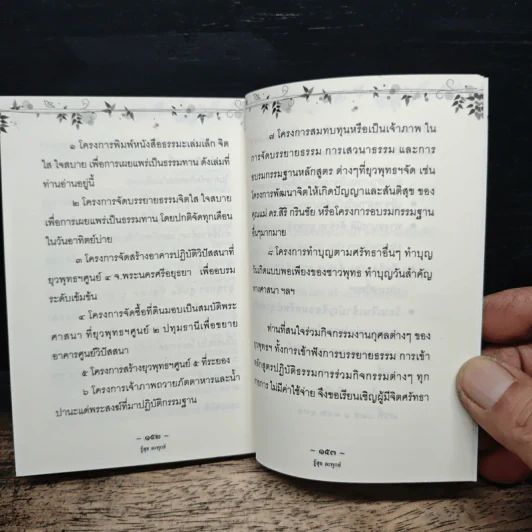 ๑ โครงการพิมพ์หนังสือธรรมะเล่มเล็ก จิต
ใส ใจสบาย เพื่อการเผยแพร่เป็นธรรมทาน ดังเล่มที่
ท่านอ่านอยู่นี้
๒ โครงการจัดบรรยายธรรมจิตใส ใจสบาย
เพื่อการเผยแพร่เป็นธรรมทาน โดยปกติจัดทุกเดือน
ในวันอาทิตย์บ่าย
๓ โครงการจัดสร้างอาคารปฏิบัติวิปัสสนาที่
ยุวพุทธฯศูนย์ ๔ จ.พระนครศรีอยุธยา เพื่ออบรม
ระดับเข้มข้น
๔ โครงการจัดซื้อที่ดินมอบเป็นสมบัติพระ
ศาสนา ที่ยุวพุทธฯศูนย์ ๒ ปทุมธานีเพื่อขยาย
อาคารศูนย์วิปัสสนา
๕ โครงการสร้างยุวพุทธฯศูนย์ ๕ ที่ระยอง
๖ โครงการเจ้าภาพถวายภัตตาหารและน้ำ
ปานะแด่พระสงฆ์ที่มาปฏิบัติกรรมฐาน
– ๑๕๒ –
รู้สุข ละทุกข์
๗ โครงการสมทบทุนหรือเป็นเจ้าภาพ ใน
การจัดบรรยายธรรม การเสวนาธรรม และการ
อบรมกรรมฐานหลักสูตร ต่างๆที่ยุวพุทธฯจัด เช่น
โครงการพัฒนาจิตให้เกิดปัญญาและสันติสุข ของ
คุณแม่ ดร.สิริ กรินชัย หรือโครงการอบรมกรรมฐาน
อื่นๆมากมาย
๘ โครงการทำบุญตามศรัทธาอื่นๆ ทำบุญ
วันเกิดแบบพอเพียงของชาวพุทธ ทำบุญวันสำคัญ
ทางศาสนา ฯลฯ
ท่านที่สนใจร่วมกิจกรรมงานกุศลต่างๆ ของ
ยุวพุทธฯ ทั้งการเข้าฟังการบรรยายธรรม การเข้า
หลักสูตรปฏิบัติธรรมการร่วมกิจกรรมต่างๆ ทุก
รายการ ไม่มีค่าใช้จ่าย จึงขอเรียนเชิญผู้มีจิตศรัทธา
– ๑๕๓ –
รู้สุข ละทุกข์